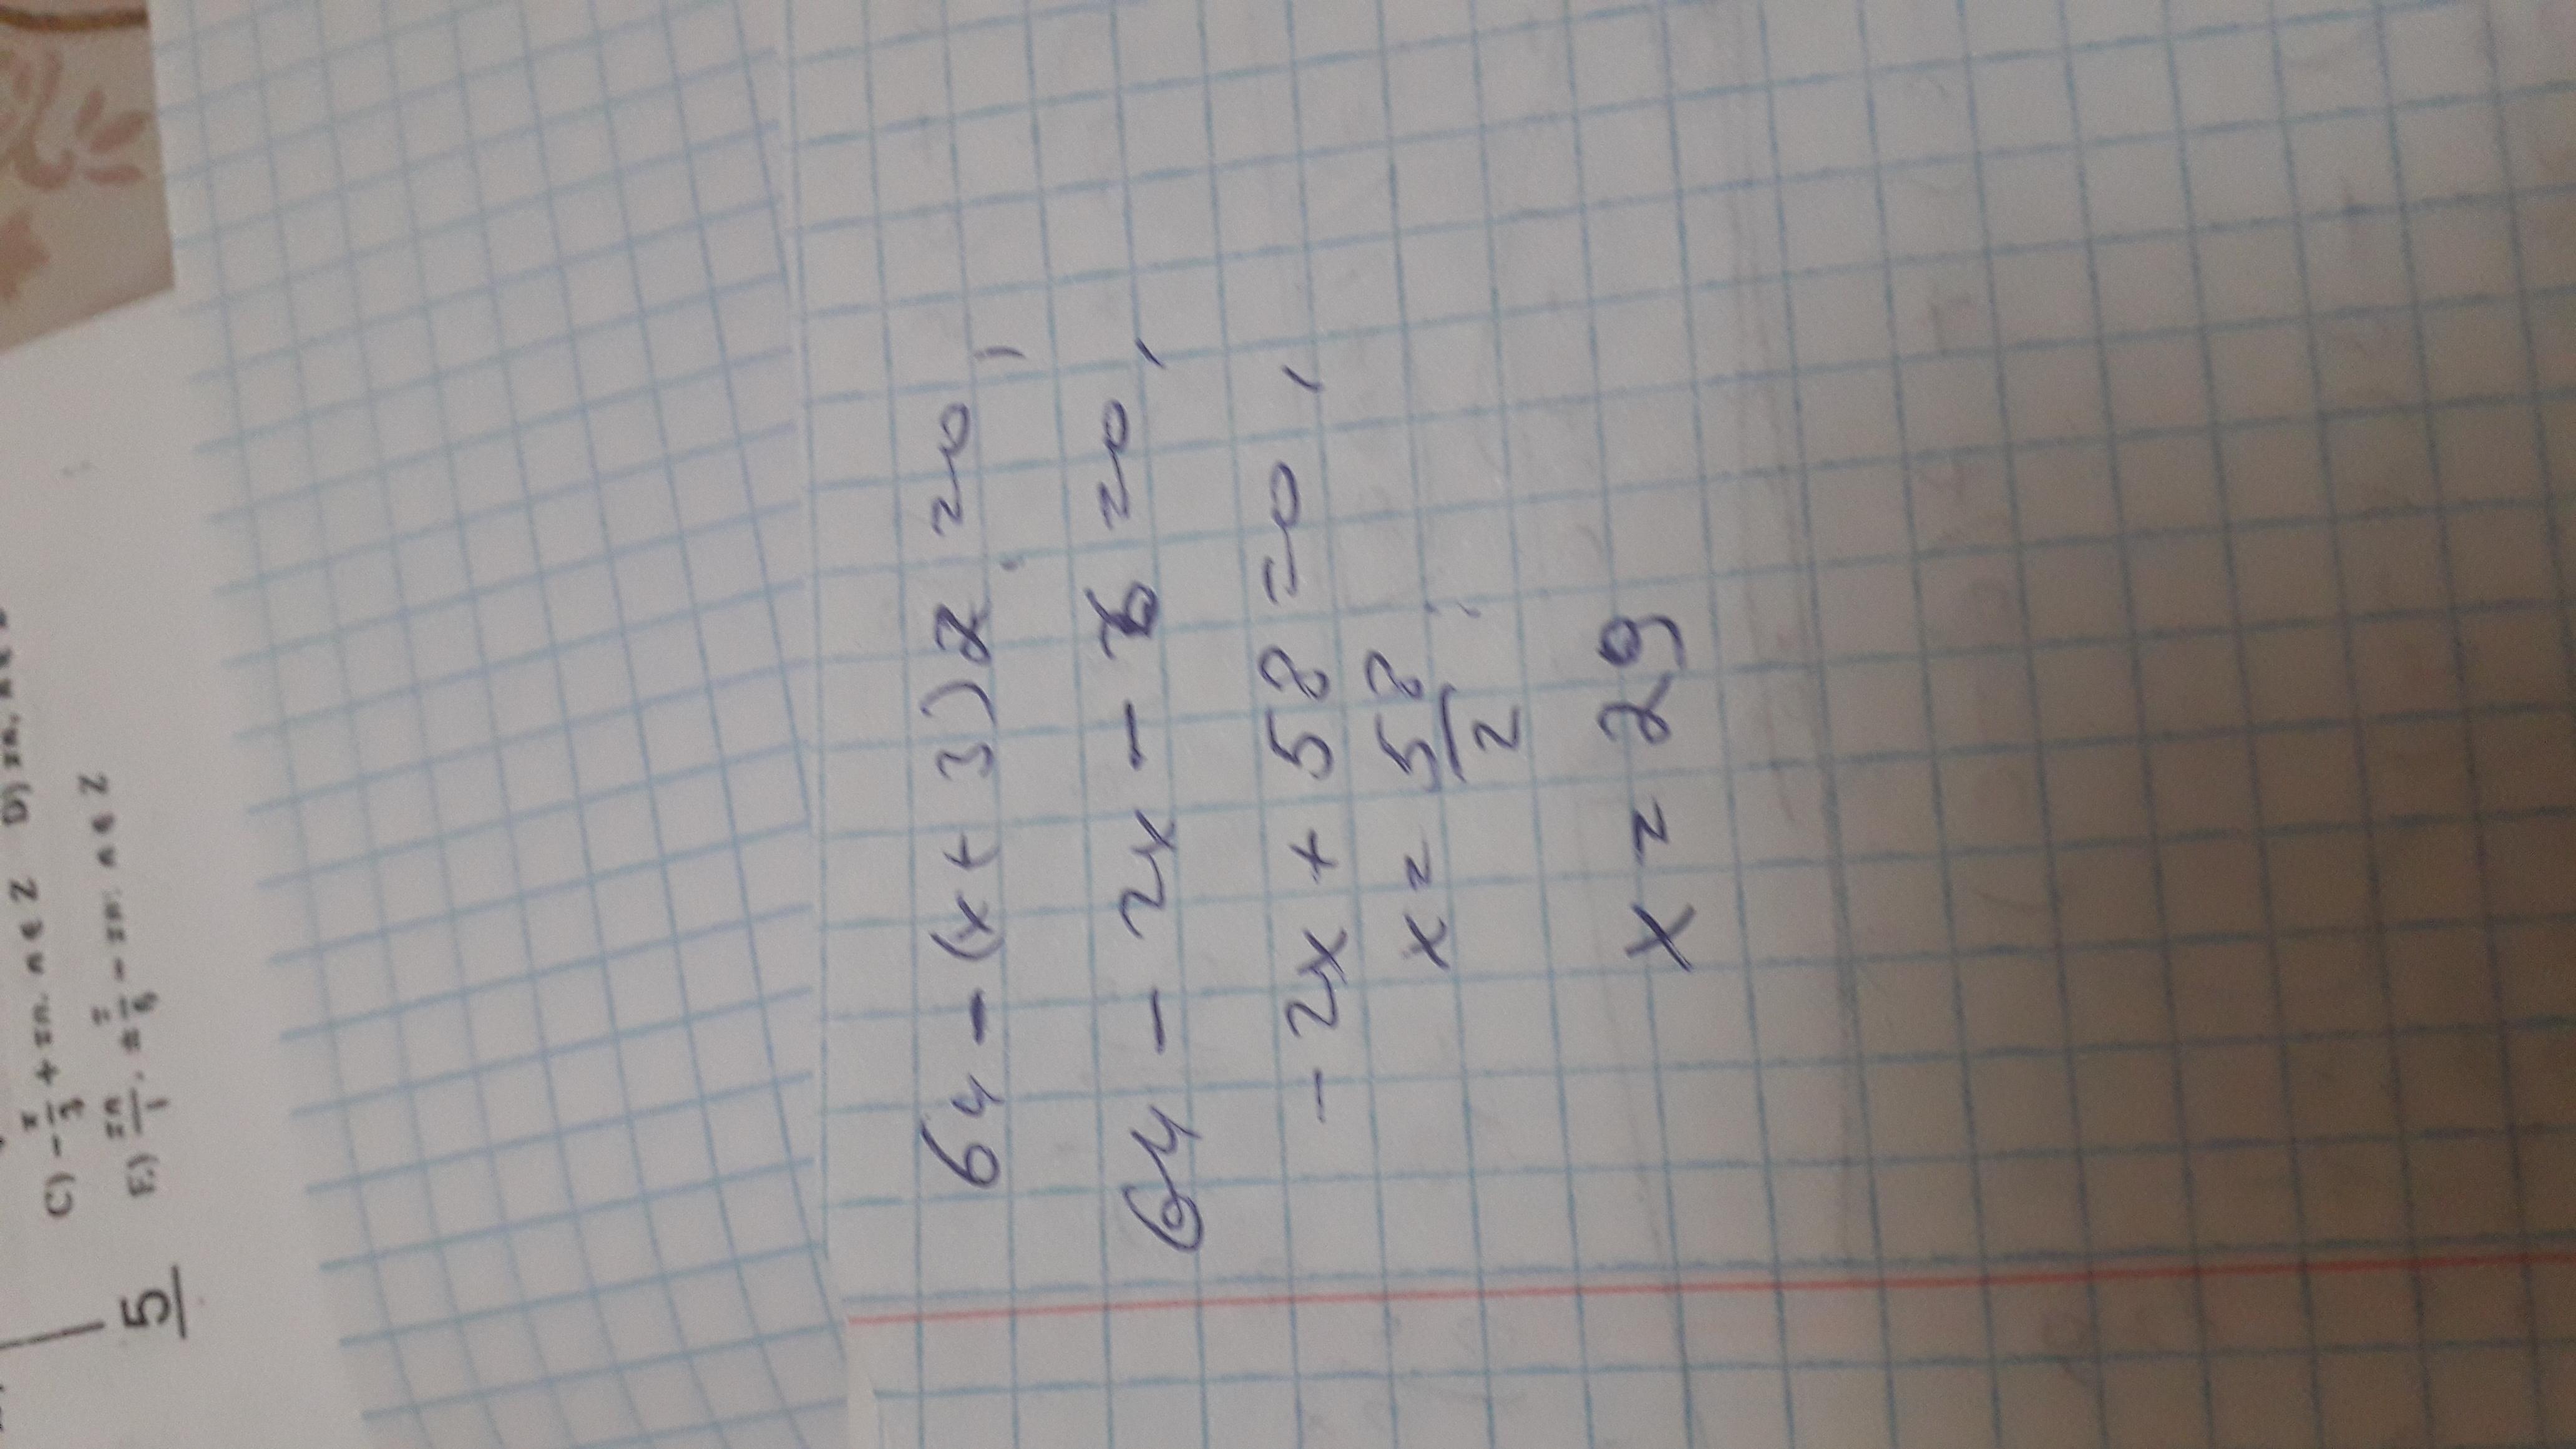 C) -π/3 + πn, n ∈ Z D) πn, n ∈ Z
E) πn/1, ±π/6 - πn: n ∈ Z
5
64 - (x + 3)2 = 0,
64 - 2x - 6 = 0,
- 2x + 58 = 0,
x = 58/2
x = 29